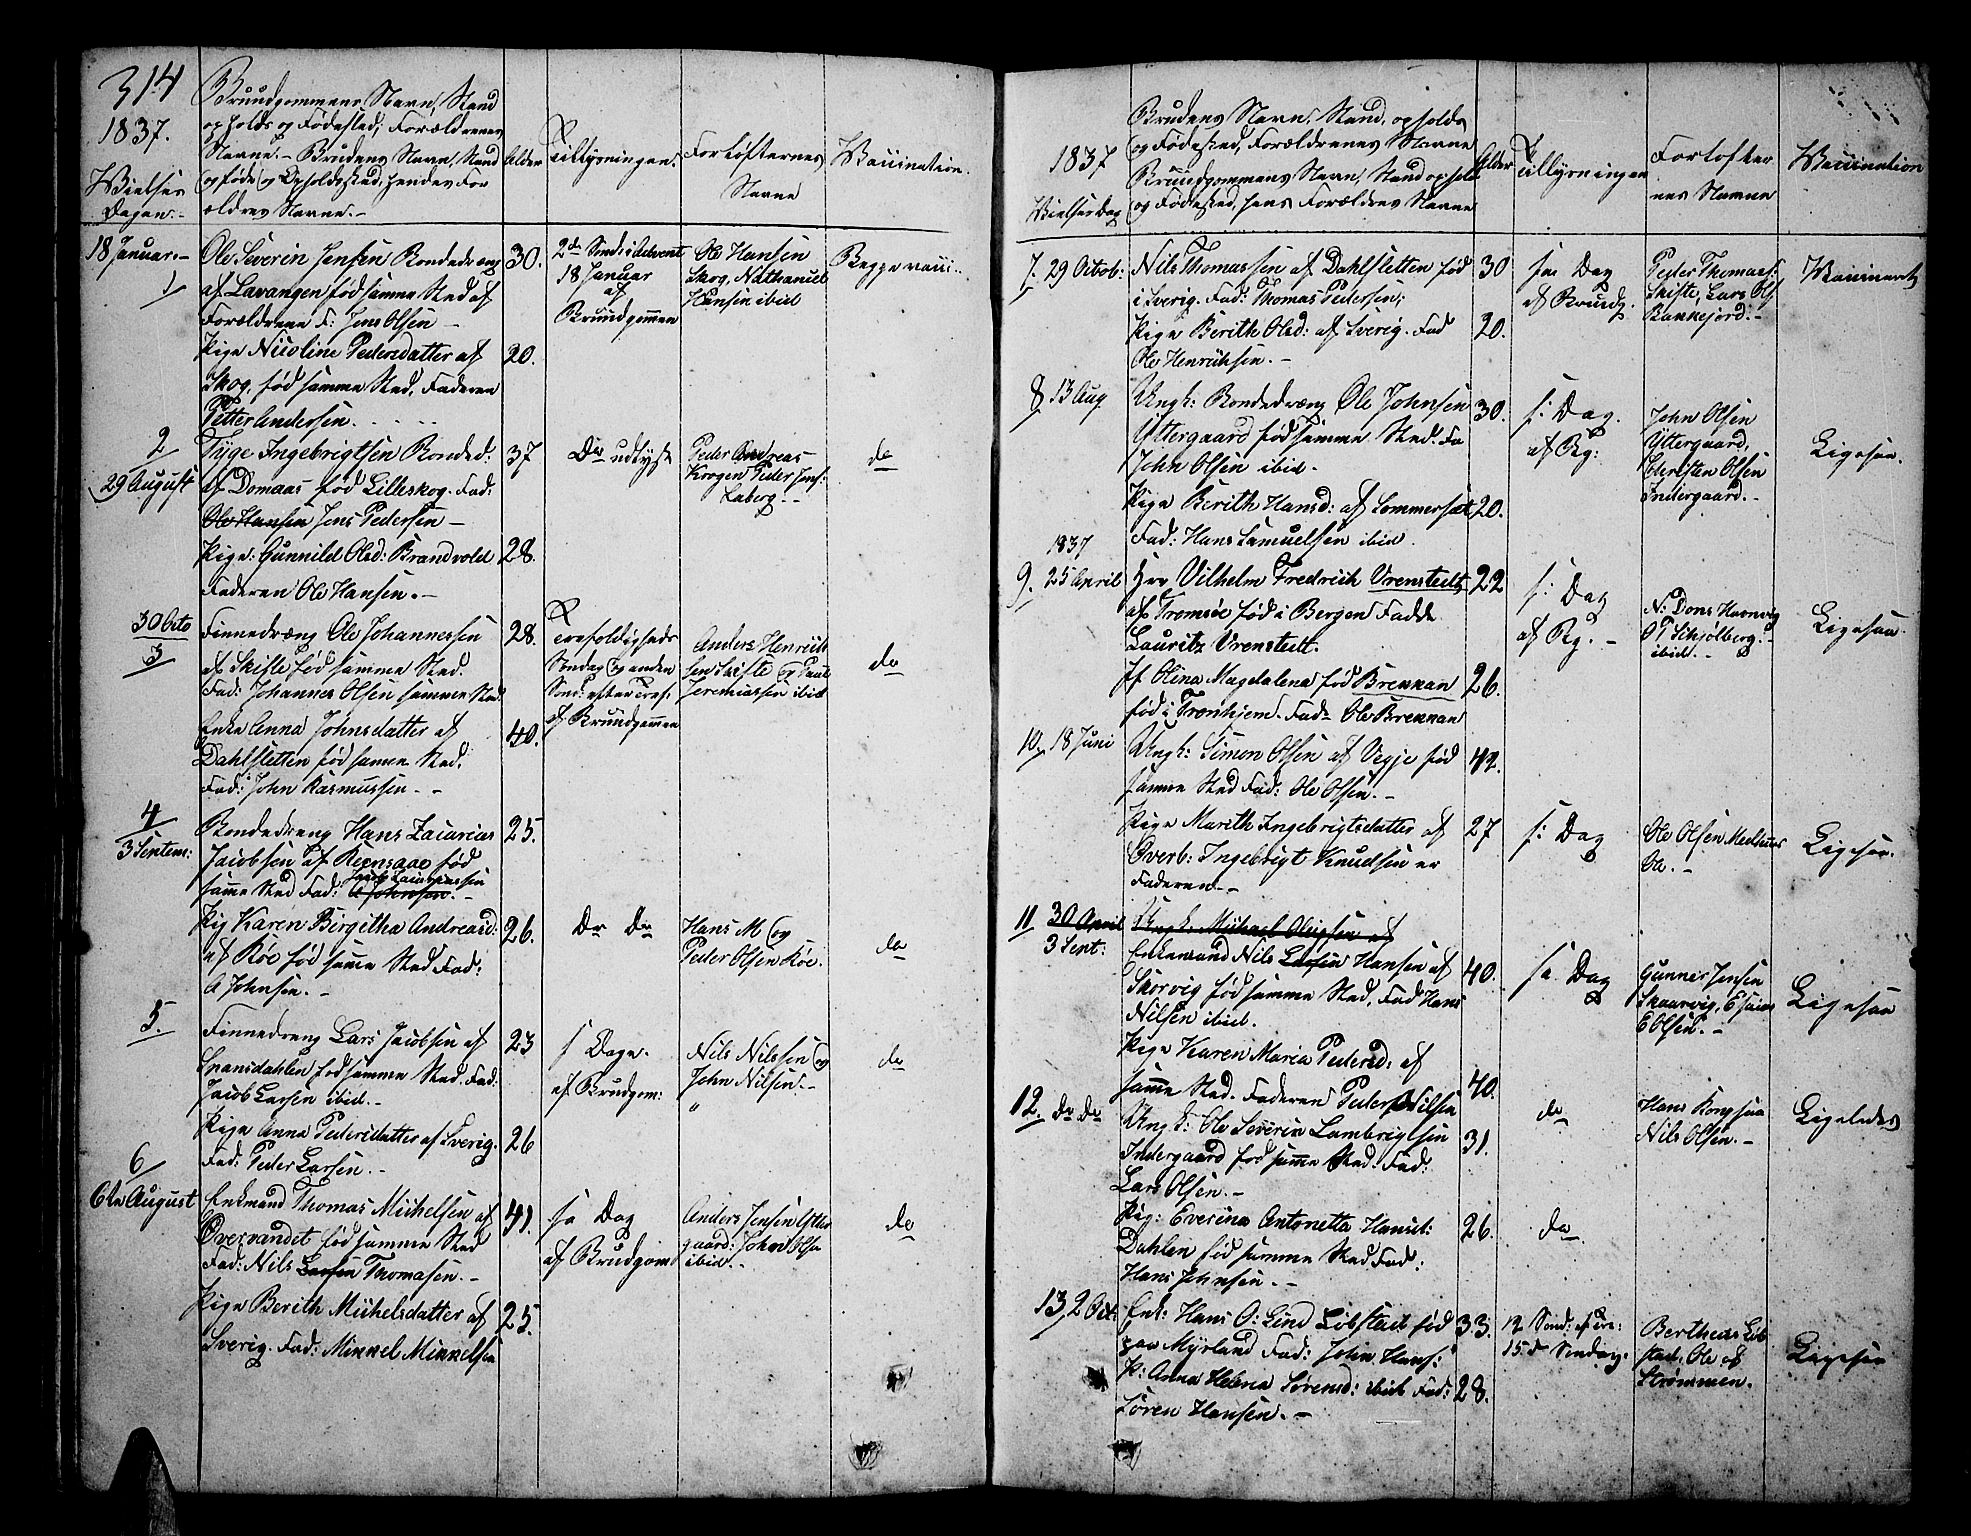 314
1837.
Vielses
Dagen.-
Bruudgommens Navn, Stand
opholds og Fødested, Forældrenes
Navne.- Brudens Navn, Stand
og føde og Opholdssted, hendes For
ældres Navne.-
Alder
Tillysningen.
Forlofternes
Navne
Vaccination.
18 Januar.-
1)
Ole Severin Jensen Bondedræng
af Lavangen født samme Sted af
Forældrene F: Jens Olsen -
30.
2den Sønd: i Advent
18 Januar
af
Brudgommen
Ole Hansen
Skog, Nathanael
Hansen ibid
Begge vacci..
Pige Nicoline Pedersdatter af
Skog, fød samme Sted, Faderen
Petter Andersen.
20.
2
29 August
Tyge Ingebrigtsen Bonded:
af Domaas fød Lilleskog. Fad:
Ole Hansen Jens Pedersen -
37
Do udlyst
Peder Andreas
Krogen Peder Jens:
Laberg.-
do
Pige: Gunnild Olsd: Brandvold
Faderen Ole Hansen.-
28.
30 Octo
3
Finnedræng Ole Johannessen
af Skifte fød samme Sted.
Fad: Johannes Olsen samme Sted
28.
Trefoldigheds
Søndag og anden
Sønd: efter Tref:
af Brudgommen
Anders Henrich
sen Skifte og Paul
Jeremiassen ibid
do
Enke Anna Johnsdatter af
Dahlsletten fød samme Sted.
Fad: John Rasmussen - -
40.
4
3 Septem:
Bondedreng Hans Zacarias
Jacobsen af Reensaae fød
samme Sted Fad: Jacob Zacariassen
A Johnsen.-
25.
Pig Karen Birgitha Andreasd:
af Røe fød samme Sted Fad:
A Johnsen.-
26.
Do Do
Hans M og
Peder Olsen Røe.
do
5.
Finnedreng Lars Jacobsen af
Spansdahlen fød samme Sted. Fad:
Jacob Larsen ibid.-
23
s Dage.
af Brudgom:
Nils Nilssen og
John Nilsen.-
"
do
Pige Anna Pedersdatter af Sverig.
Fad: Peder Larsen.-
26
6
6te August
Enkmand Thomas Michelsen af
Overvandet fød samme Sted
Fad: Nils Larsen Thomasen.-
41.
sa Dag
af Brudgom
Anders Jensen Ytter
gaard: John Olsen
ibid.-
do
Pige Berith Michelsdatter af
Sverig. Fad: Mikkel Mikkelsen
25.
1837
Vielses Dag
Brudens Navn, Stand, opholds
og Fødested, Forældrenes Navne
Bruudgommens Navn, Stand opholds
og Fødested, hans Forældres Navne
Alder
Tillysningen
Forlofter
nes Navne
Vaccination
7. 29 Octob:
Nils Thomassen af Dahlsletten fød
i Sverig. Fad: Thomas Pedersen;
30
sa Dag
af Brudg.
Peder Thomass:
Skifte, Lars Ols
Bakkejord.-
Vaccinerts
Pige Berith Olsd: af Sverig. Fad
Ole Henriksen.-
20.
8 13 Aug
Ungk: Bondedræng Ole Johnsen
Yttergaard fød samme Sted. Fa
John Olsen ibid.
30.
s: Dag.
af Bg:
John Olsen
Yttergaard,
Christen Olsen
Indergaard.-
Ligesaa.
Pige Berith Hansd: af Sommersæt
Fad: Hans Samuelsen ibid.
20.
1837
9. 25 April
Hrr Vilhelm Fredrich Vrenstedt
af Tromsøe fød i Bergen Fadd
Lauritz Vrenstedt.
22
s: Dag
af Bg.-
N: Dons Havnvig
O T Schjølberg.-
ibid.-
Ligesaa.
Jf Olina Magdalena fød Brekkan
fød i Tronhjem. Fad: Ole Brekkan
26.
10. 18 Juni
Ungk: Simon Olsen af Vegje fød
samme Sted Fad: Ole Olsen.-
42.
Pige Marith Ingebrigtsdatter af
Overb: Ingebrigt Knudsen er
Faderen.-
27
s: Dag
Ole Olsen
Ole.-
Ligesaa.
11 30 April
3 Sept:
Ungk. Michael Olsen af
Enkemand Nils Larsen Hansen af
Skorvig fød samme Sted, Fad Hans
Nilsen ibid.
40.
sa Dag
Gunner Jensen
Skaarvig, Esaias
E Olsen.-
Ligesaa
Pige Karen Maria Pedersd: af
samme Sted. Faderen Peder Nilsen
40.
12. Do Do
Ungk: Ole Severin Lambrigtsen
Indergaard fød samme Sted. Fad:
Lars Olsen.-
31.
do
Hans Kongsaa
Nils Olsen.-
Ligeledes
Pig: Everina Antonetta Hansd:
Dahlen fød samme Sted Fad:
Hans Johnsen.-
26.
do.
13, 2 Oct:
Enk: Hans O: Lind Lobstad fød
paa Myrland Fad: John Hans:
33.
12 Sønd: af Tre:
15de Søndag.
Bertheus Lob
stad, Ole af
Strømmen.
Ligesaa
P: Anna Helena Sørensd: ibid Fad:
Søren Hansen.-
28.